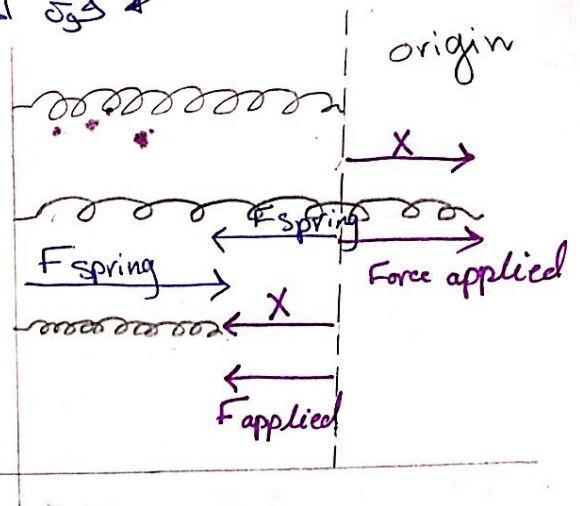 origin
X
Fspring
Force applied
Fspring
X
Fapplied